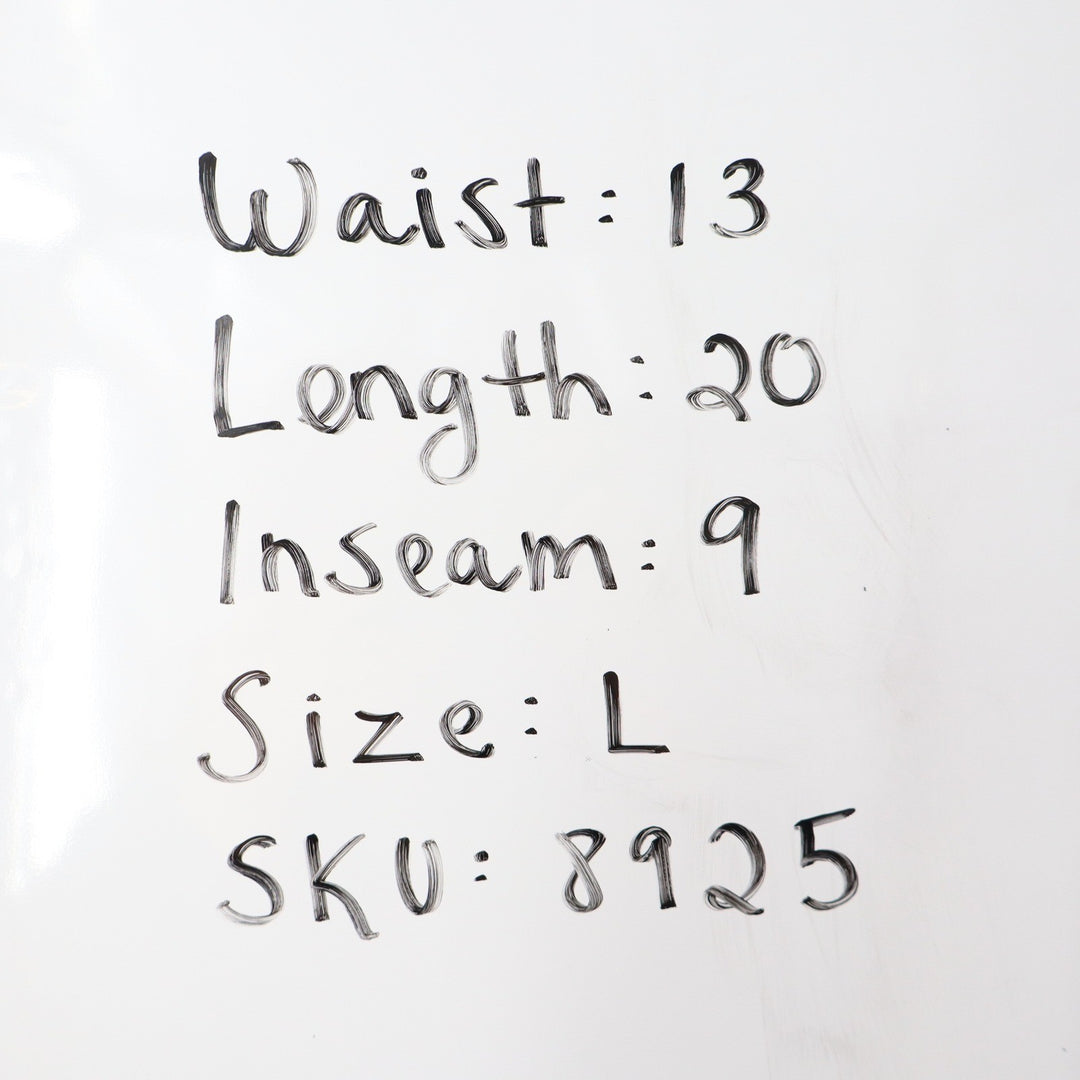 Waist: 13
Length: 20
Inseam: 9
Size: L
SKU: 8925